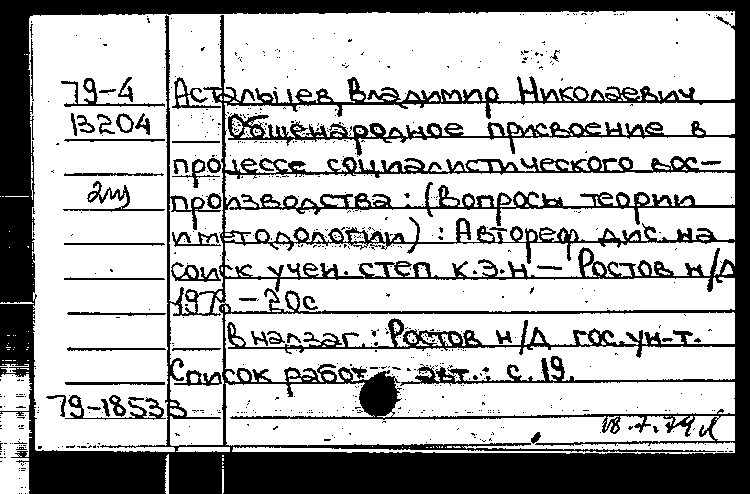 79-4 Астальцев, Владимир Николаевич
13204 Общенародное присвоение в
процессе социалистического вос-
2 экз производства: (Вопросы теории
и методологии): Автореф. дис. на
соиск. учен. степ. к.э.н. — Ростов н/Д
1978 — 20с
В надзаг.: Ростов н/Д гос. ун-т.
Список работ авт.: с. 19.
79-18533